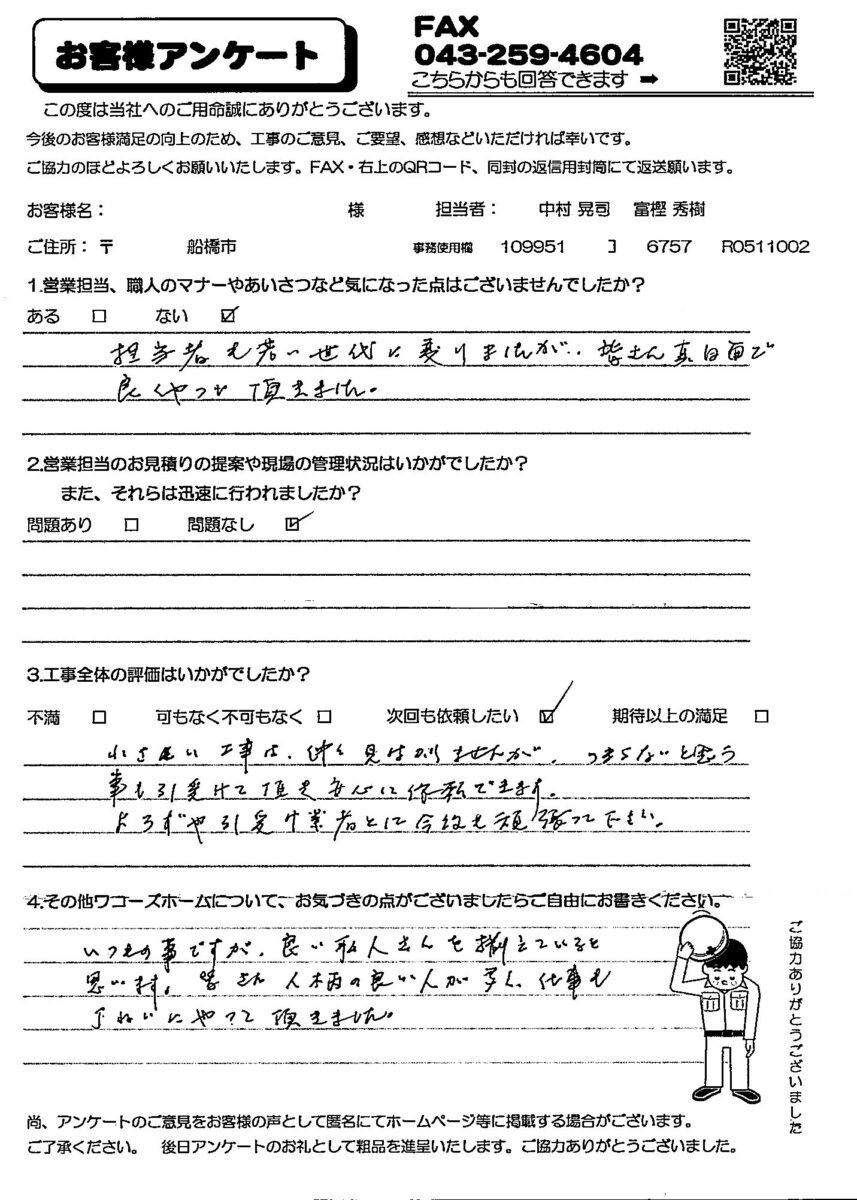 お客様アンケート
FAX
043-259-4604
こちらからも回答できます ➡
この度は当社へのご用命誠にありがとうございます。
今後のお客様満足の向上のため、工事のご意見、ご要望、感想などいただければ幸いです。
ご協力のほどよろしくお願いいたします。FAX・右上のQRコード、同封の返信用封筒にて返送願います。
お客様名： 様 担当者： 中村 晃司 富樫 秀樹
ご住所：〒 船橋市 事務使用欄 109951 コ 6757 R0511002
1.営業担当、職人のマナーやあいさつなど気になった点はございませんでしたか？
ある □ ない ☑
担当者も若い世代に変りましたが、皆さん真面目で
良くやって頂きました。
2.営業担当のお見積りの提案や現場の管理状況はいかがでしたか？
また、それらは迅速に行われましたか？
問題あり □ 問題なし ☑
3.工事全体の評価はいかがでしたか？
不満 □ 可もなく不可もなく □ 次回も依頼したい ☑ 期待以上の満足 □
小さい工事は、仲々見つかりませんが、つまらないと思う
事も引受けて頂き安心に依頼できます。
よろずや引受け業者として今後も頑張って下さい。
4.その他ワコーズホームについて、お気づきの点がございましたらご自由にお書きください。
いつもの事ですが、良い職人さんを揃えていると
思います。皆さん人柄の良い人が多く、仕事も
ていねいにやって頂きました。
ご協力ありがとうございました
尚、アンケートのご意見をお客様の声として匿名にてホームページ等に掲載する場合がございます。
ご了承ください。 後日アンケートのお礼として粗品を進呈いたします。ご協力ありがとうございました。